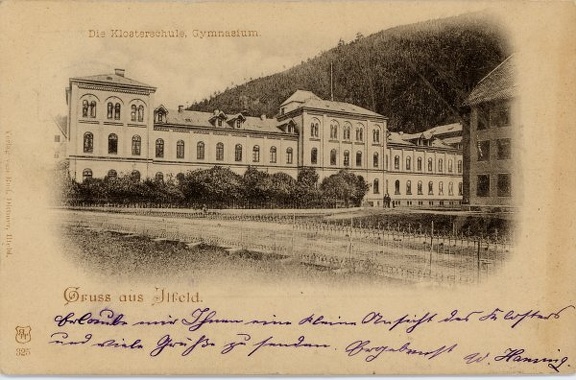 Die Klosterschule, Gymnasium.
Gruss aus Ilfeld.
Erlaube mir Ihnen eine kleine Ansicht des Klosters
und viele Grüße zu senden. Ergebenst W. Hanning.
325
Verlag von Ilfeld.